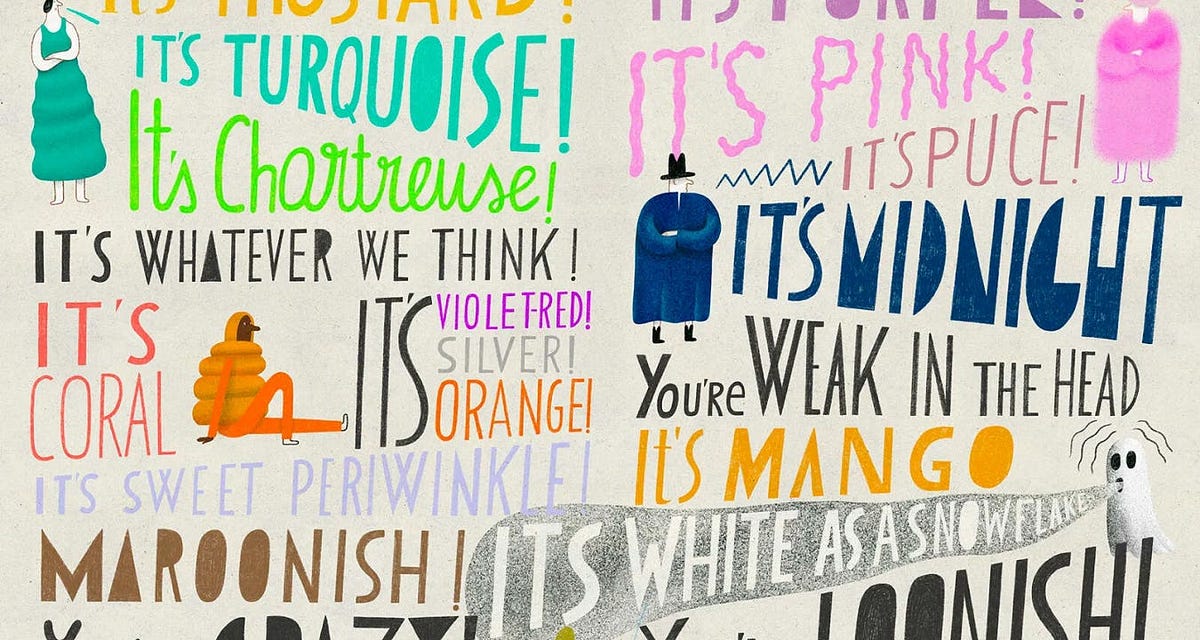 IT'S MUSTARD!
IT'S TURQUOISE!
It's Chartreuse!
IT'S WHATEVER WE THINK!
IT'S
CORAL
IT'S
VIOLET-RED!
SILVER!
ORANGE!
IT'S SWEET PERIWINKLE!
MAROONISH!
CRAZY!
IT'S PURPLE!
IT'S PINK!
IT'S PUCE!
IT'S MIDNIGHT
You're WEAK IN THE HEAD
It'S MANGO
IT'S WHITE AS A SNOWFLAKE
LOONISH!